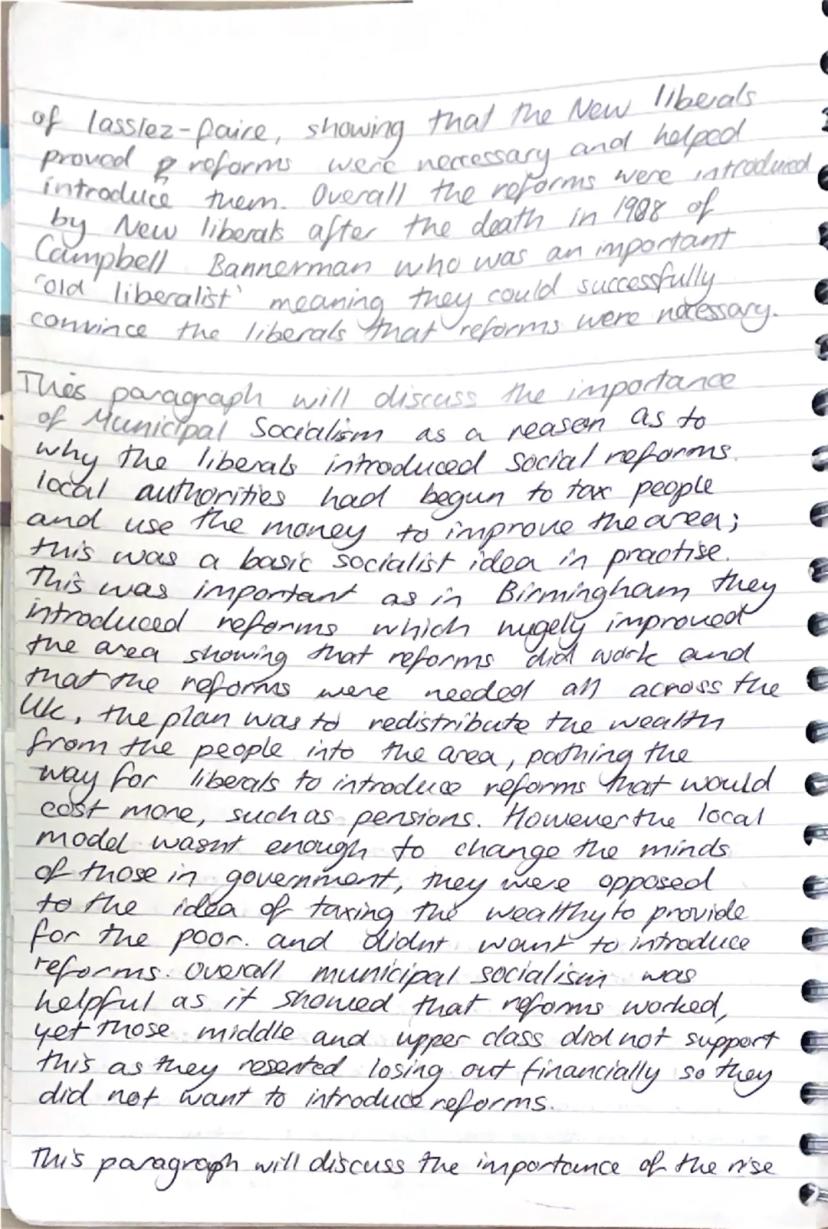 of lasslez-faire, showing that the New liberals
proved reforms were neccessary and helped
introduce them. Overall the reforms were introduced
by New liberals after the death in 1908 of
Campbell Bannerman who was an important
'old liberalist' meaning they could successfully
convince the liberals that reforms were necessary.
This paragraph will discuss the importance
of Municipal Socialism as a reason as to
why the liberals introduced social reforms.
local authorities had begun to tax people
and use the money to improve the area;
this was a basic socialist idea in practise.
This was important as in Birmingham they
introduced reforms which hugely improved
the area showing that reforms did work and
that the reforms were needed all across the
UK, the plan was to redistribute the wealth
from the people into the area, pathing the
way for liberals to introduce reforms that would
cost more, such as pensions. However the local
model wasnt enough to change the minds
of those in government, they were opposed
to the idea of taxing the wealthy to provide
for the poor. and didnt want to introduce
reforms. Overall municipal socialism was
helpful as it showed that reforms worked,
yet those middle and upper class did not support
this as they resented losing out financially so they
did not want to introduce reforms.
This paragraph will discuss the importance of the rise